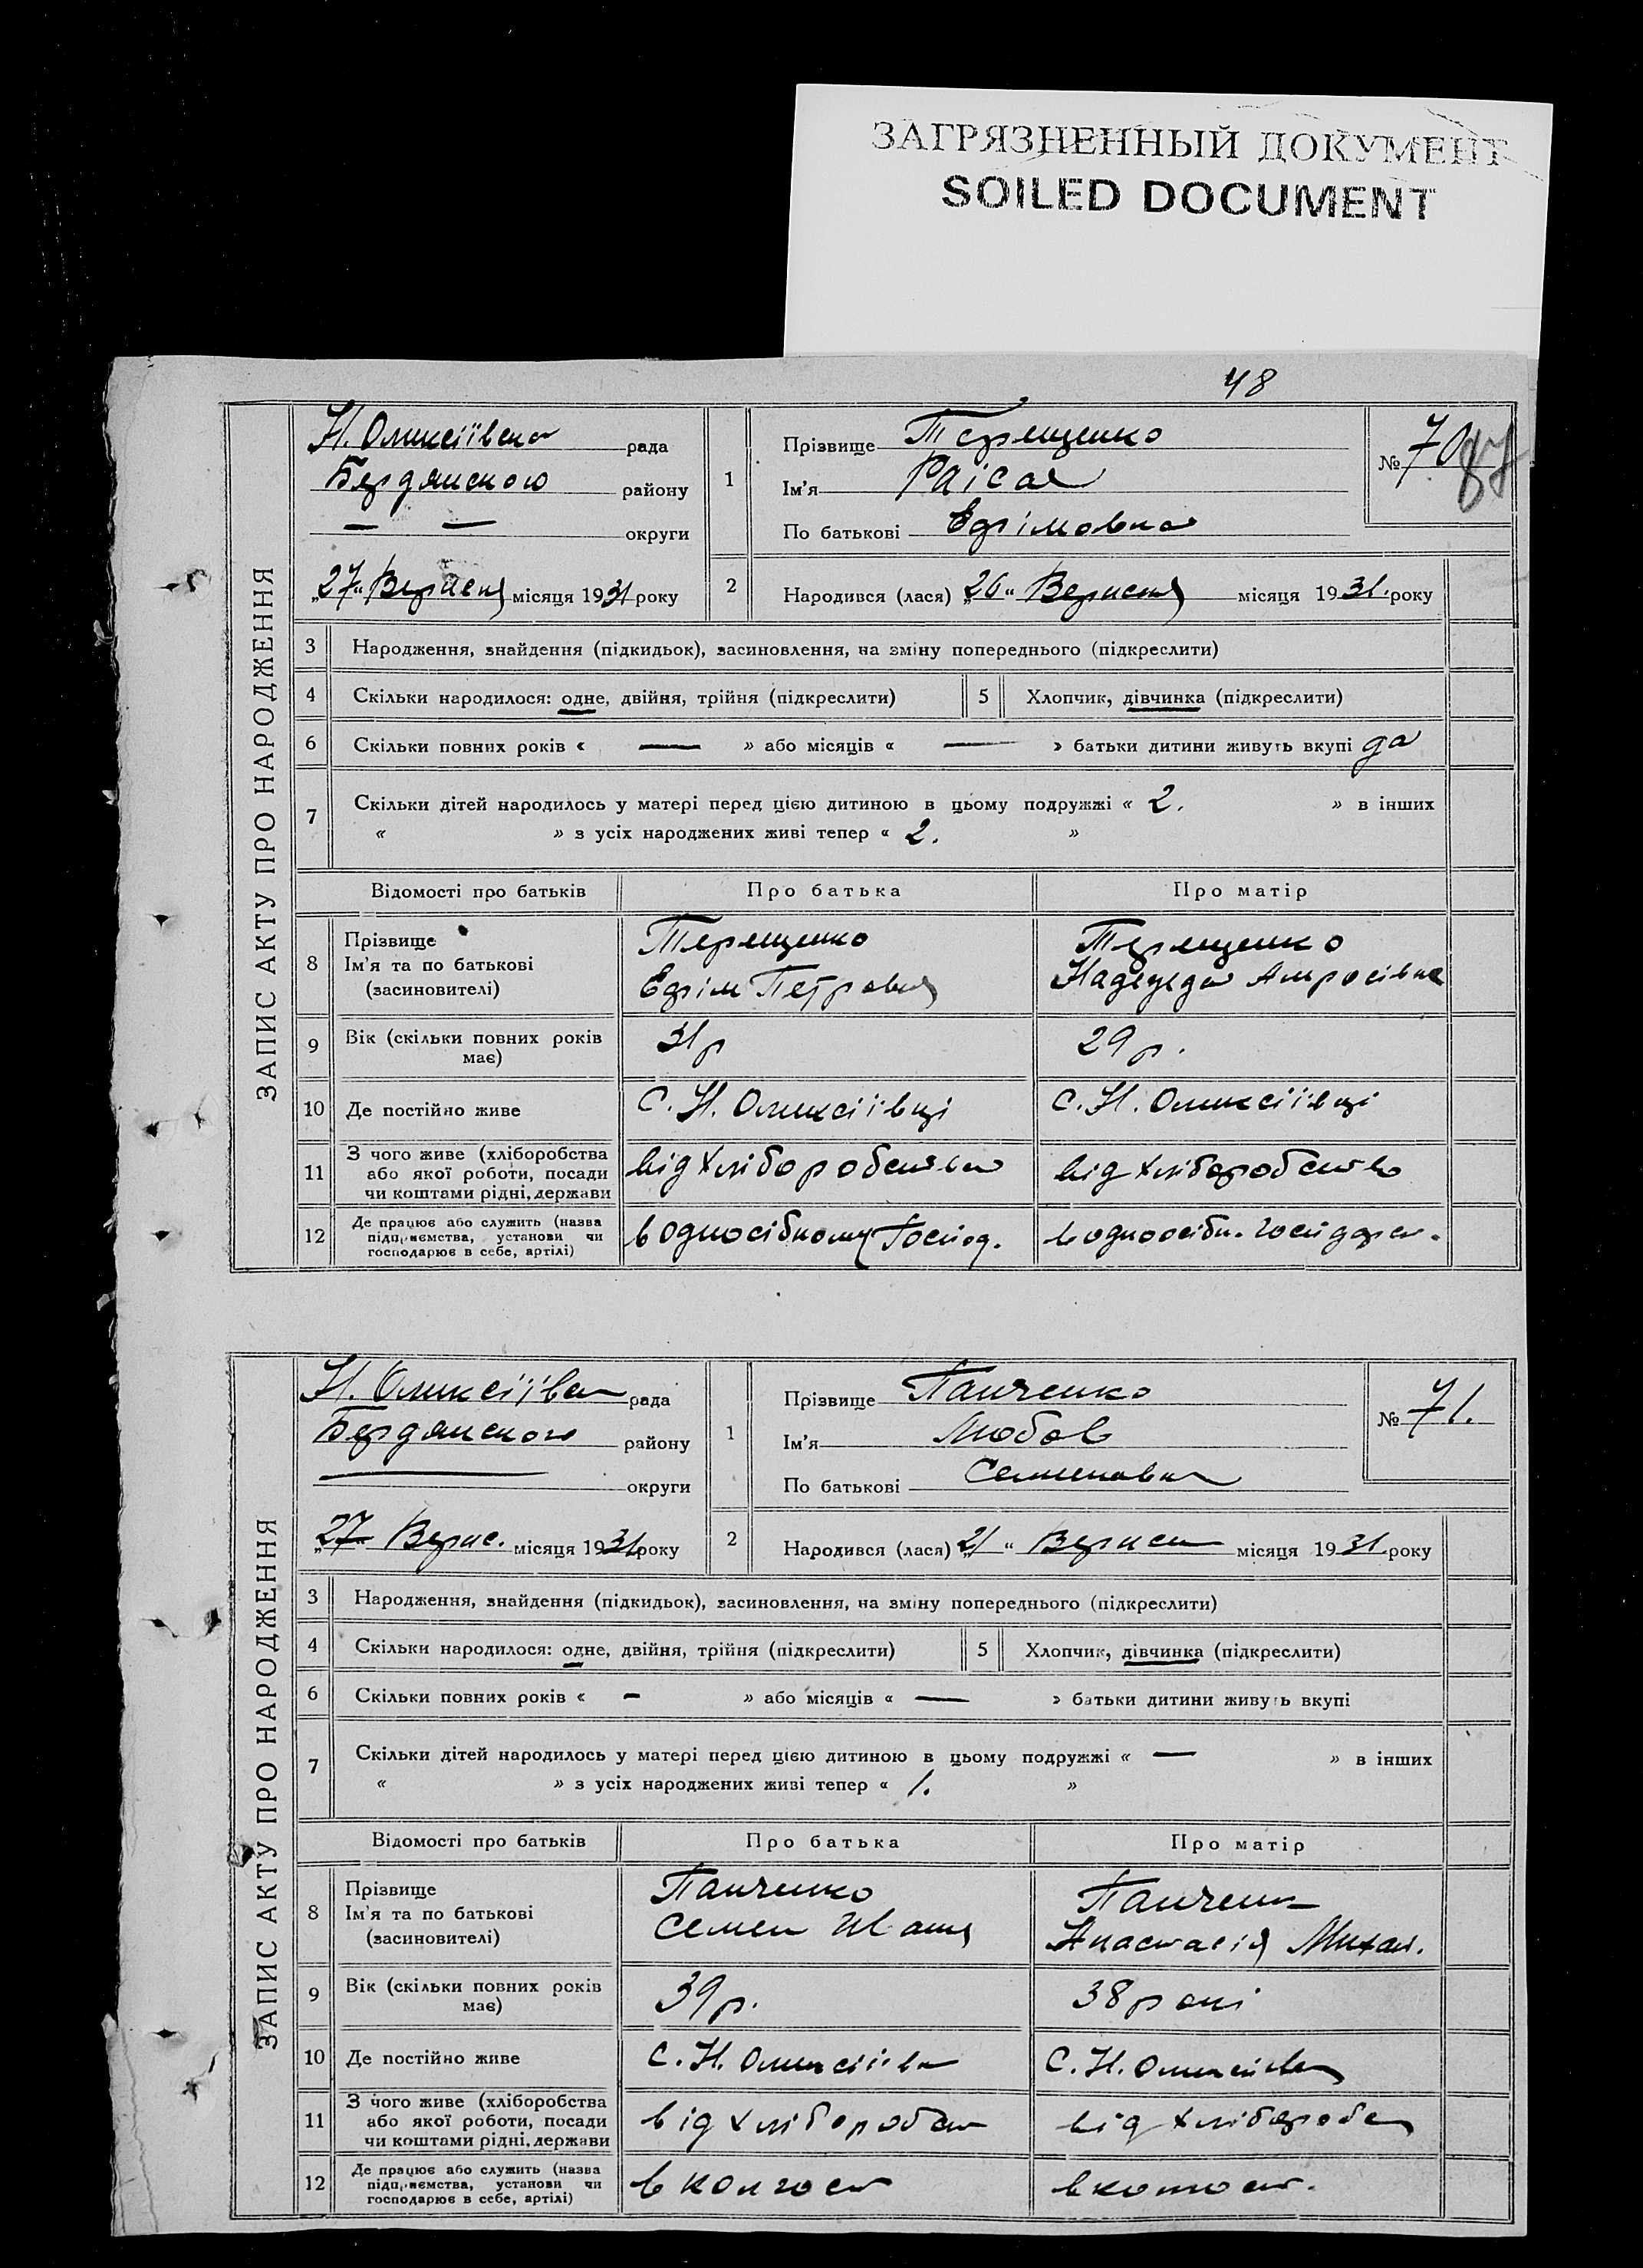 ЗАГРЯЗНЕННЫЙ ДОКУМЕНТ
SOILED DOCUMENT
48
ЗАПИС АКТУ ПРО НАРОДЖЕННЯ
Н. Олексіївська рада
Бердянского району
— — округи
„27“ Вересня місяця 1931 року
1 Прізвище Терещенко
Ім’я Раїса
По батькові Єфімовна
№ 70
2 Народився (лася) „26“ Вересня місяця 1931. року
3 Народження, знайдення (підкидьок), засиновлення, на зміну попереднього (підкреслити)
4 Скільки народилося: одне, двійня, трійня (підкреслити) 5 Хлопчик, дівчинка (підкреслити)
6 Скільки повних років « — » або місяців « — » батьки дитини живуть вкупі да
7 Скільки дітей народилось у матері перед цією дитиною в цьому подружжі « 2. » в інших
« » з усіх народжених живі тепер « 2. »
Відомості про батьків Про батька Про матір
8 Прізвище
Ім’я та по батькові
(засиновителі)
Терещенко
Єфім Петрович
Терещенко
Надежда Амросівна
9 Вік (скільки повних років
має)
31 р
29 р.
10 Де постійно живе С. Н. Олексіївці С. Н. Олексіївці
11 З чого живе (хліборобства
або якої роботи, посади
чи коштами рідні, держави
від хліборобства
від хліборобства
12 Де працює або служить (назва
підприємства, установи чи
господарює в себе, артілі)
в односібному Господ.
в односібн. господар.
ЗАПИС АКТУ ПРО НАРОДЖЕННЯ
Н. Олексіївська рада
Бердянского району
— округи
„27“ Верес. місяця 1931 року
1 Прізвище Панченко
Ім’я Любов
По батькові Семеновна
№ 71.
2 Народився (лася) „21“ Вересня місяця 1931. року
3 Народження, знайдення (підкидьок), засиновлення, на зміну попереднього (підкреслити)
4 Скільки народилося: одне, двійня, трійня (підкреслити) 5 Хлопчик, дівчинка (підкреслити)
6 Скільки повних років « — » або місяців « — » батьки дитини живуть вкупі
7 Скільки дітей народилось у матері перед цією дитиною в цьому подружжі « — » в інших
« » з усіх народжених живі тепер « 1. »
Відомості про батьків Про батька Про матір
8 Прізвище
Ім’я та по батькові
(засиновителі)
Панченко
Семен Иван
Панченк
Анастасія Михал.
9 Вік (скільки повних років
має)
39 р.
38 рокі
10 Де постійно живе С. Н. Олексіївка С. Н. Олексіївка
11 З чого живе (хліборобства
або якої роботи, посади
чи коштами рідні, держави
від хліборобст
від хліборобст
12 Де працює або служить (назва
підприємства, установи чи
господарює в себе, артілі)
в колгосп
в колгосп.